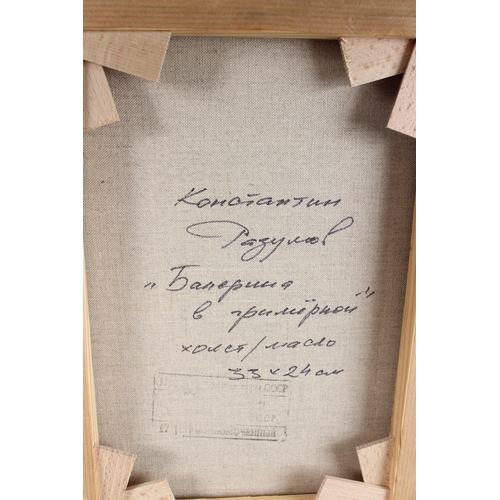 Константин
Разумов
„Балерина
в гримёрной"
холст/масло
33 x 24 см
СССР
СССР